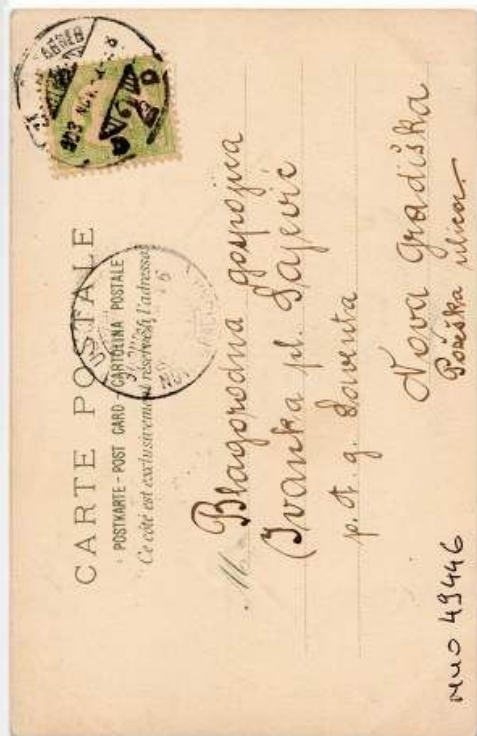 CARTE POSTALE
POSTKARTE - POST CARD - CARTOLINA POSTALE
Ce côté est exclusivement réservé à l'adresse
903 NOV.
M
Blagorodna gospojica
Ivanka pl.
p. A. g.
Nova Gradiška
Požeška ulica
MUO 49446